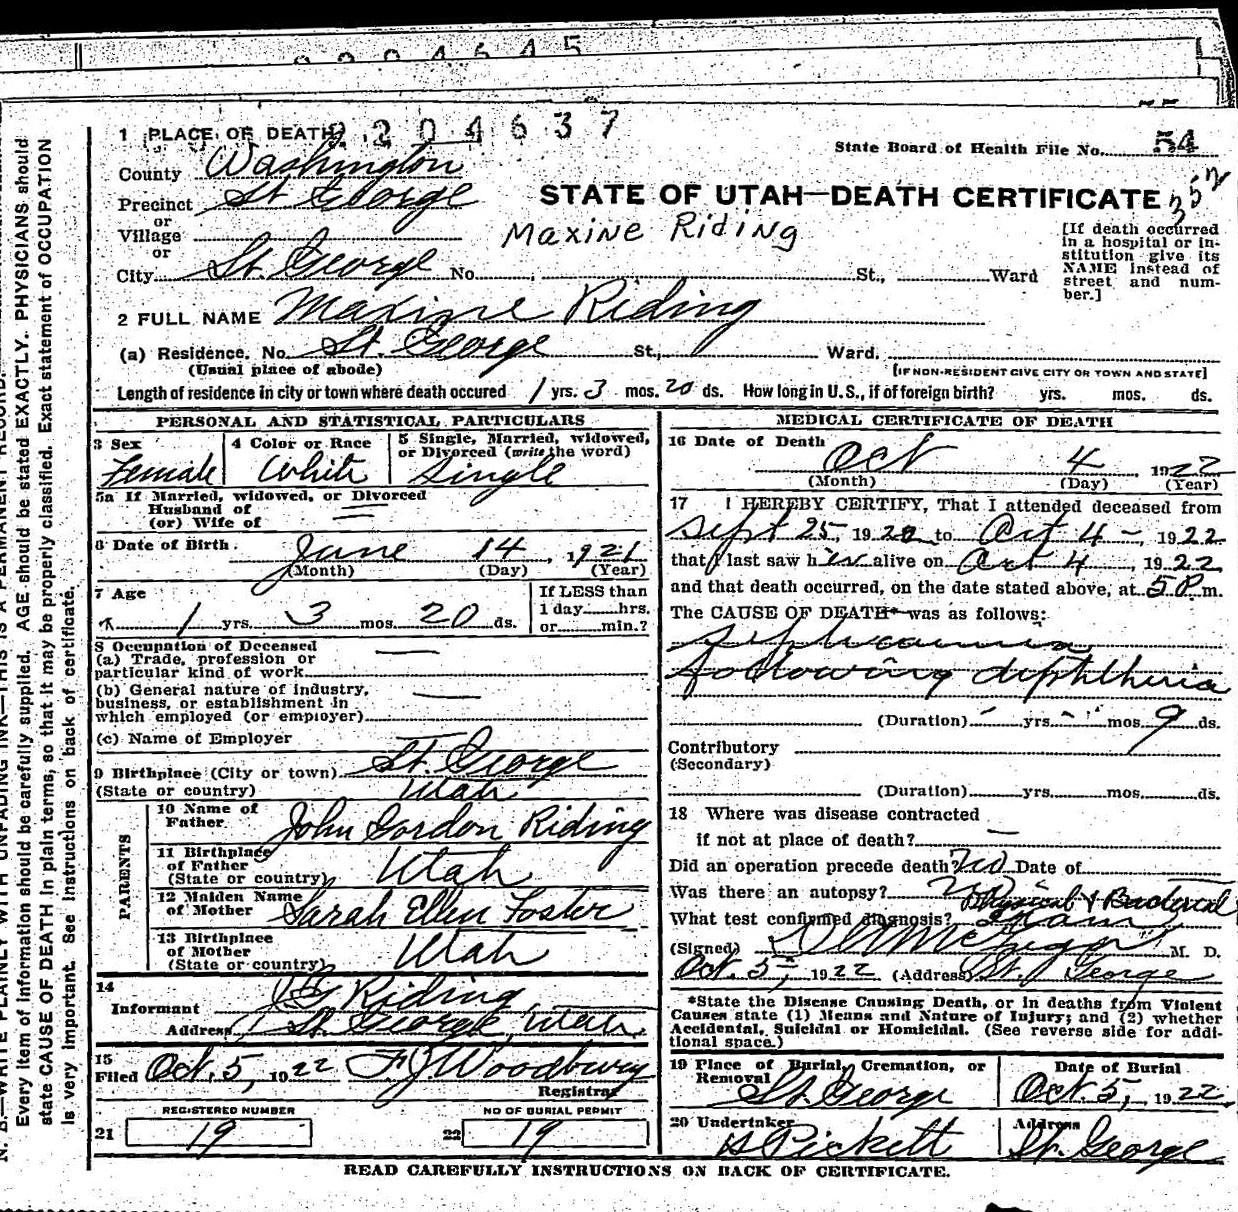 2204637
1 PLACE OF DEATH
State Board of Health File No. 54
County Washington
352
Precinct St George
STATE OF UTAH—DEATH CERTIFICATE
or
Village
Maxine Riding
or
City St. George No. St., Ward
[If death occurred
in a hospital or in-
stitution give its
NAME instead of
street and num-
ber.]
2 FULL NAME Maxine Riding
(a) Residence. No. St. George St., Ward.
(Usual place of abode) [IF NON-RESIDENT GIVE CITY OR TOWN AND STATE]
Length of residence in city or town where death occured 1 yrs. 3 mos. 20 ds. How long in U.S., if of foreign birth? yrs. mos. ds.
PERSONAL AND STATISTICAL PARTICULARS
3 Sex Female
4 Color or Race White
5 Single, Married, widowed,
or Divorced (write the word)
Single
5a If Married, widowed, or Divorced
Husband of
(or) Wife of
6 Date of Birth June 14, 1921
(Month) (Day) (Year)
7 Age
1 yrs. 3 mos. 20 ds.
If LESS than
1 day hrs.
or min.?
8 Occupation of Deceased
(a) Trade, profession or
particular kind of work
(b) General nature of industry,
business, or establishment in
which employed (or employer)
(c) Name of Employer
9 Birthplace (City or town) St. George
(State or country) Utah
PARENTS
10 Name of
Father John Gordon Riding
11 Birthplace
of Father
(State or country) Utah
12 Maiden Name
of Mother Sarah Ellen Foster
13 Birthplace
of Mother
(State or country) Utah
14
Informant J G Riding
Address St. George, Utah.
15
Filed Oct. 5, 1922 F. J. Woodbury
Registrar
REGISTERED NUMBER NO OF BURIAL PERMIT
21 19 22 19
MEDICAL CERTIFICATE OF DEATH
16 Date of Death Oct 4 1922
(Month) (Day) (Year)
17 I HEREBY CERTIFY, That I attended deceased from
Sept 25, 1922 to Oct 4 -, 1922
that I last saw her alive on Oct 4, 1922
and that death occurred, on the date stated above, at 5 P m.
The CAUSE OF DEATH* was as follows:
Septicaemia
following diphtheria
(Duration) yrs. mos. 9 ds.
Contributory
(Secondary)
(Duration) yrs. mos. ds.
18 Where was disease contracted
if not at place of death?
Did an operation precede death? No Date of
Was there an autopsy? No
Physical & Bacterial
What test confirmed diagnosis? Exam
(Signed) McGregor M. D.
Oct. 5, 1922 (Address) St. George
*State the Disease Causing Death, or in deaths from Violent
Causes state (1) Means and Nature of Injury; and (2) whether
Accidental, Suicidal or Homicidal. (See reverse side for addi-
tional space.)
19 Place of Burial, Cremation, or
Removal St. George
Date of Burial
Oct. 5, 1922
20 Undertaker Pickett
Address
St. George
READ CAREFULLY INSTRUCTIONS ON BACK OF CERTIFICATE.
Every item of information should be carefully supplied. AGE should be stated EXACTLY. PHYSICIANS should
state CAUSE OF DEATH in plain terms, so that it may be properly classified. Exact statement of OCCUPATION
is very important. See instructions on back of certificate.
N. B.—WRITE PLAINLY WITH UNFADING INK—THIS IS A PERMANENT RECORD.